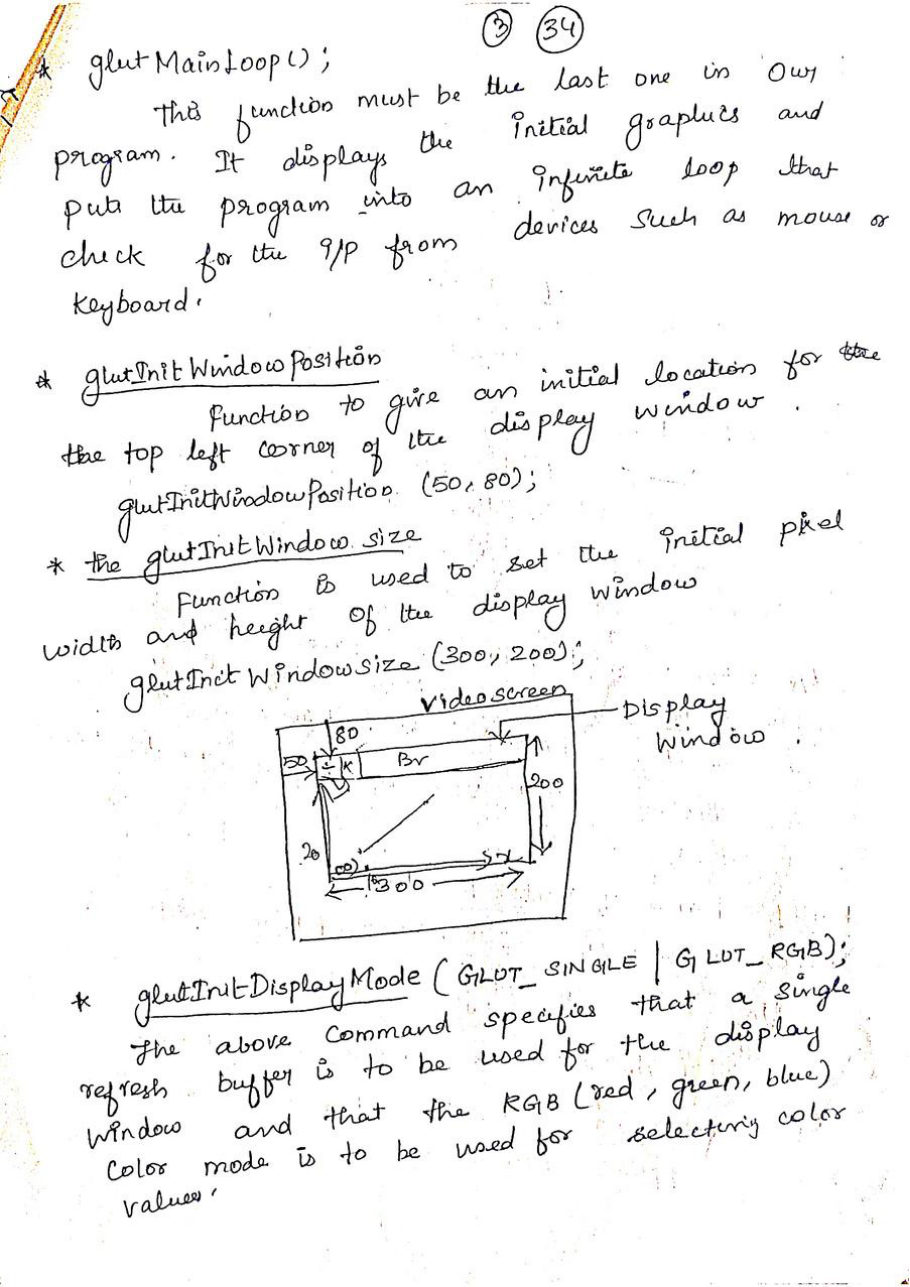 3 34
* glutMainLoop();
This function must be the last one in our
program. It displays the initial graphics and
puts the program into an infinite loop that
check for the I/P from devices such as mouse or
keyboard.
* glutInitWindowPosition
Function to give an initial location for the
the top left corner of the display window.
glutInitWindowPosition (50, 80);
* the glutInitWindow size
Function is used to set the initial pixel
width and height of the display window
glutInit Window size (300, 200);
Video screen
Display
Window
80
50
Br
200
20
300
* glutInitDisplayMode (GLUT_SINGLE | GLUT_RGB);
The above command specifies that a single
refresh buffer is to be used for the display
window and that the RGB (red, green, blue)
Color mode is to be used for selecting color
values.